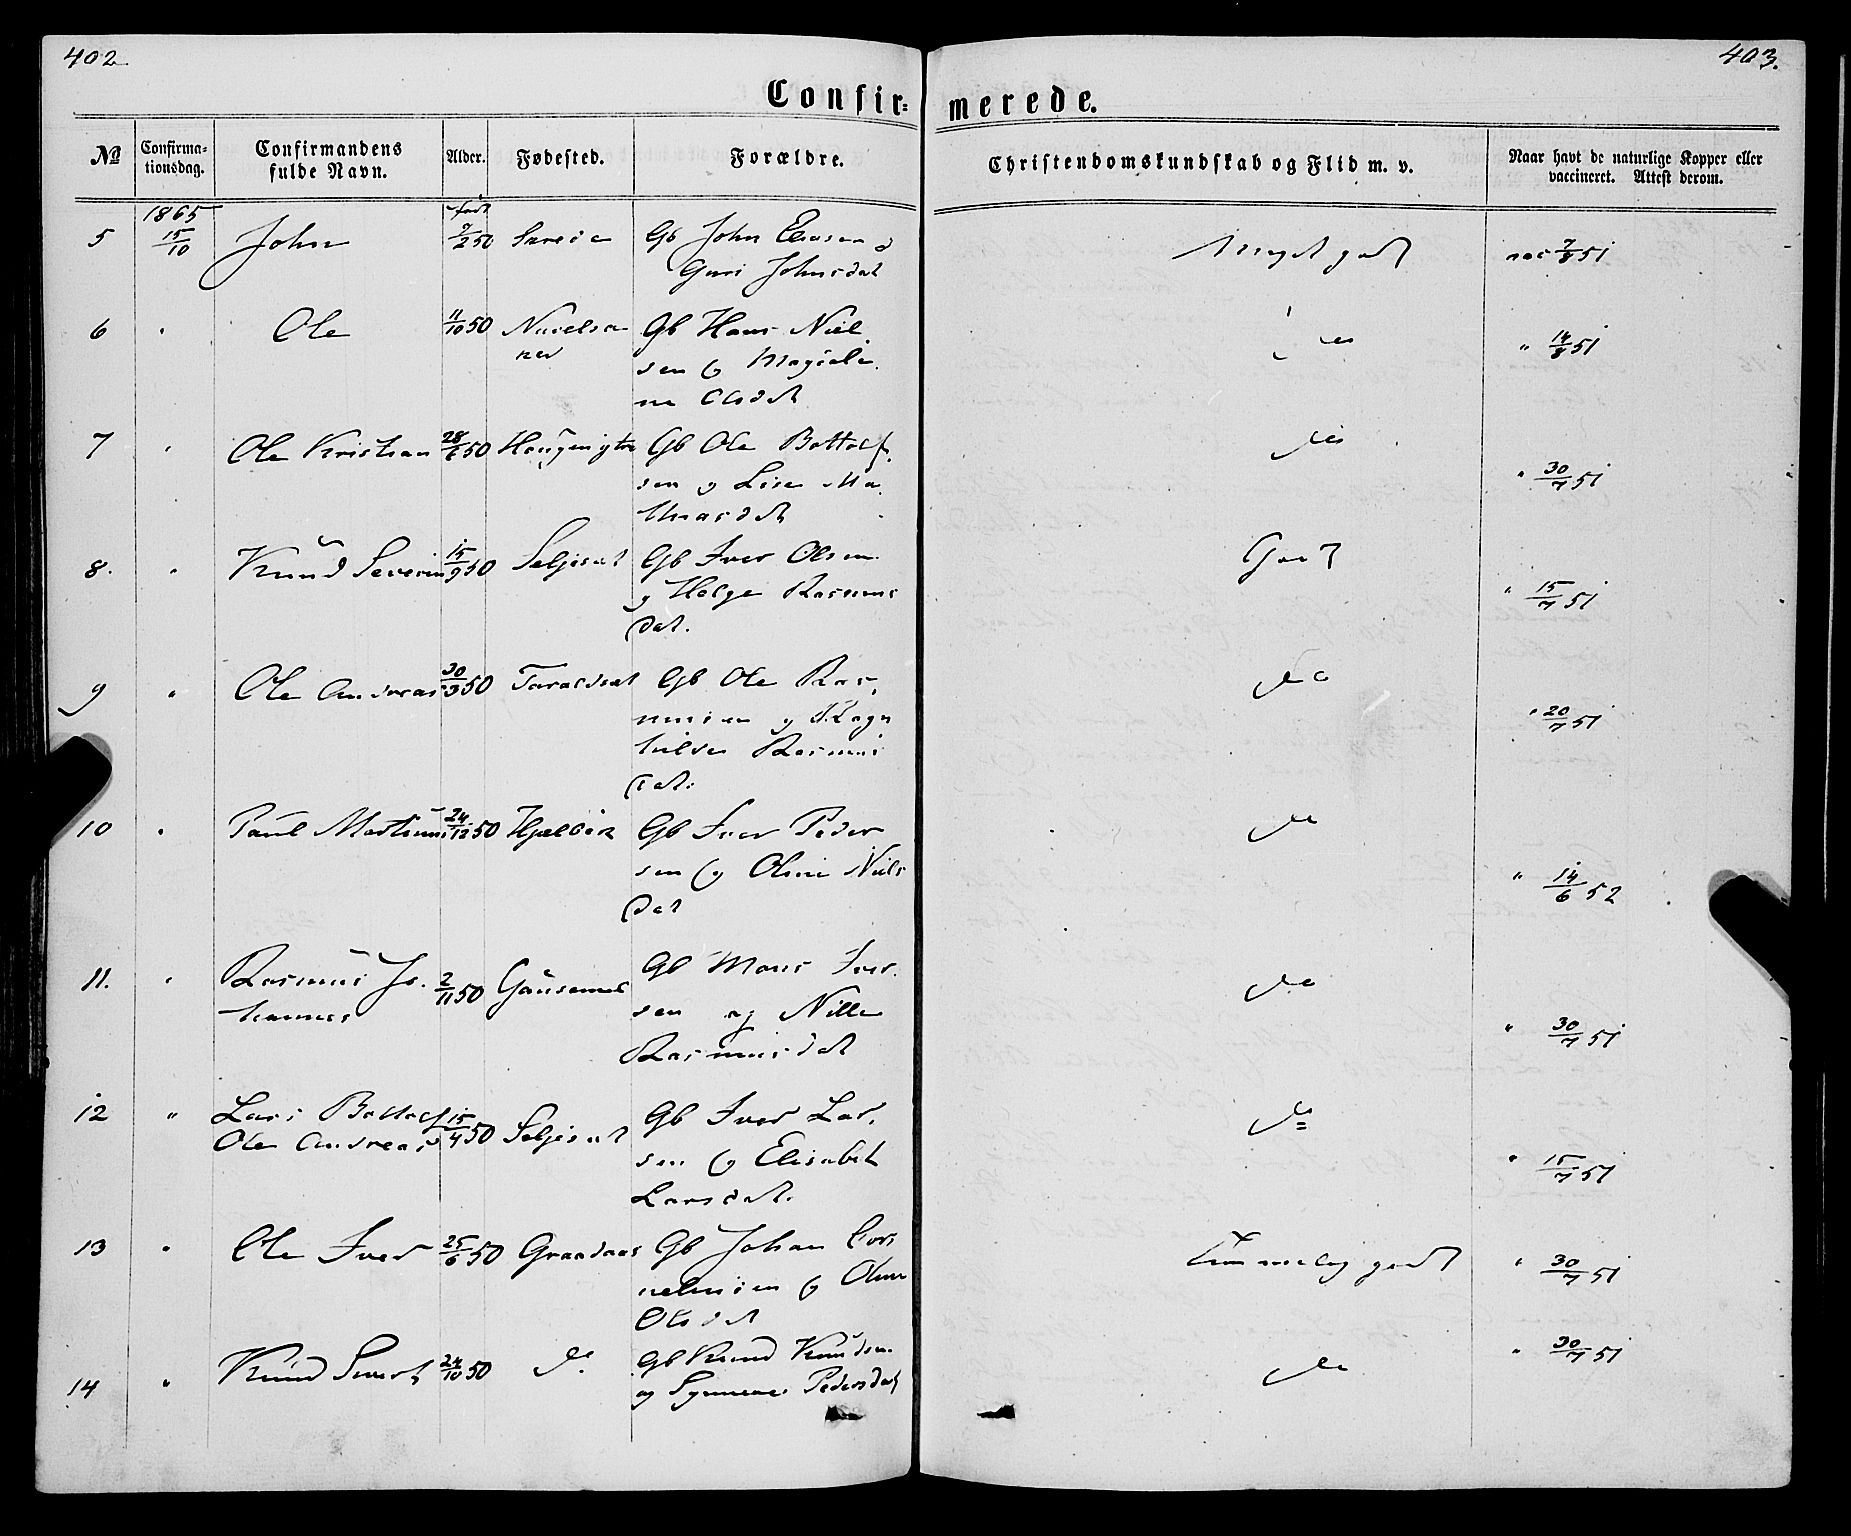 402
403.
Confir=
merede.
No
Confirma-
tionsdag.
Confirmandens
fulde Navn.
Alder.
Fødested.
Forældre.
Christendomskundskab og Flid m. v.
Naar havt de naturlige Kopper eller
vaccineret. Attest derom.
1865
født
5 15/10 John 9/2 50 Gb John
Guri Johnsdat
Meget godt
vac 7/8 51
6 " Ole 11/10 50 Gb Hans Niel
sen og Magdale
ne Olsdat
" 14/8 51
7 " Ole Kristian 28/6 50 Gb Ole Bottolf
sen og Lise Ma
thiasdat
do
" 30/7 51
8. " Knud Severin 15/9 50 Seljeset Gb Iver Olsen
og Helge Rasmus
dat.
Godt
" 15/7 51
9 " Ole Andreas 30/3 50 Taraldset Gb Ole Ras
musen og Ragn
hilde Rasmus
dat.
do
" 20/7 51
10 " Paul Martinus 24/12 50 Gb Iver Peder
sen og Oline Niels
dat
do
" 14/6 52
11. " Rasmus Jo-
hannes
2/11 50 Gausemel Gb Mons Iver
sen og Nille
Rasmusdat
do
" 30/7 51
12 " Lars Bottolf
Ole Andreas
15/4 50 Seljeset Gb Iver Lar
sen og Elisabet
Larsdat.
do
" 15/7 51
13 " Ole Iver 25/6 50 Graadaas Gb Johan Cor
neliusen og Oline
Olsdat
Temmelig godt
" 30/7 51
14 " Knud Sivert 24/10 50 do. Gb Knud Knudsen
og Synneve Pedersdat
do
" 30/7 51